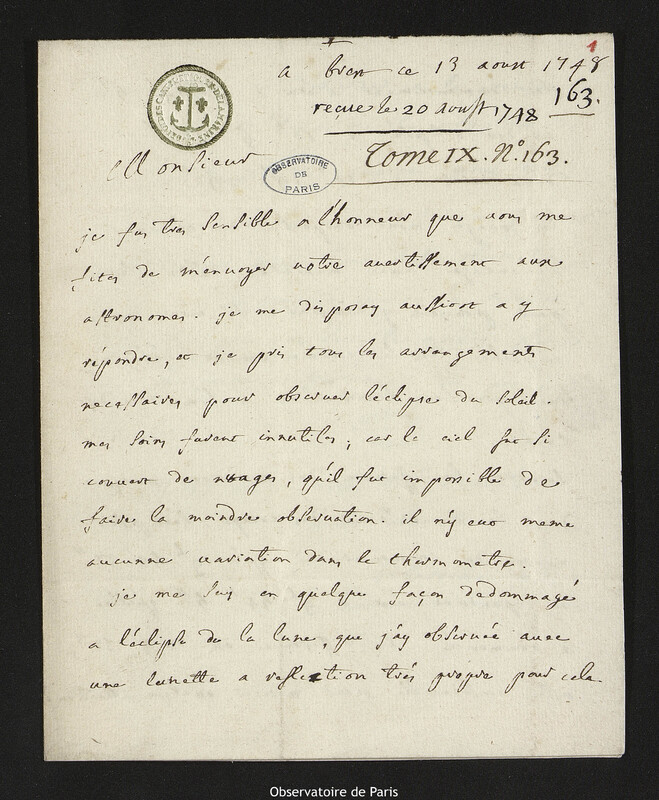 1
a brest ce 13 aoust 1748
reçue le 20 aoust 1748 163.
Tome IX. N.º 163.
OBSERVATOIRE
DE
PARIS
Monsieur
je fus tres sensible a l'honneur que vous me
fites de m'envoyer votre avertissement aux
astronomes. je me disposay aussitost a y
répondre, et je pris tous les arrangements
necessaires pour observer l'éclipse du soleil.
mes soins furent innutiles, car le ciel fut si
couvert de nuages, qu'il fut impossible de
faire la moindre observation. il n'y eut meme
aucunne variation dans le thermometre.
je me suis en quelque façon dedommagé
a l'éclipse de la lune, que j'ay observée avec
une lunette a reflection trés propre pour cela
Observatoire de Paris